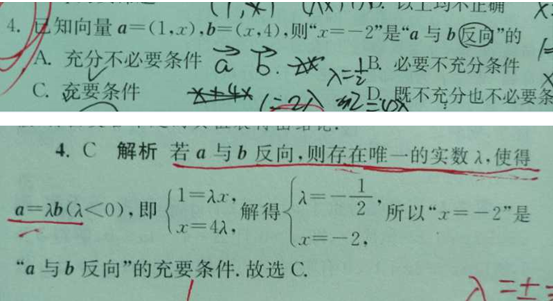 4. 已知向量 a=(1,x),b=(x,4),则“x=-2”是“a 与 b 反向”的
A. 充分不必要条件
B. 必要不充分条件
C. 充要条件
D. 既不充分也不必要条
λ=1/2
4. C 解析 若 a 与 b 反向,则存在唯一的实数 λ,使得
a=λb(λ<0),即 {1=λx, x=4λ, 解得 {λ=-1/2, x=-2, 所以“x=-2”是
“a 与 b 反向”的充要条件. 故选 C.